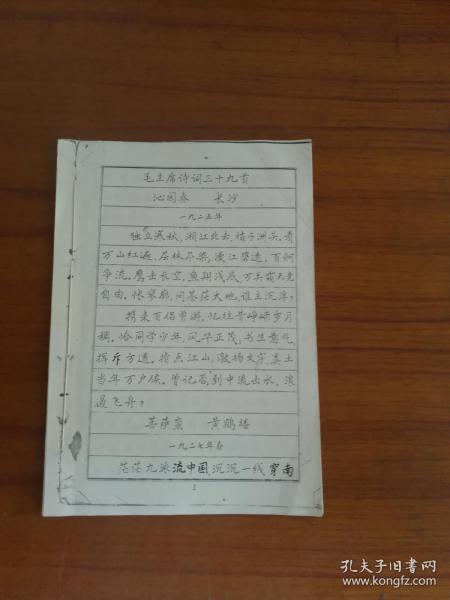 毛主席诗词三十九首
沁园春 长沙
一九二五年
独立寒秋，湘江北去，橘子洲头。看
万山红遍，层林尽染，漫江碧透，百舸
争流。鹰击长空，鱼翔浅底，万类霜天竞
自由。怅寥廓，问苍茫大地，谁主沉浮？
携来百侣曾游。忆往昔峥嵘岁月
稠。恰同学少年，风华正茂，书生意气，
挥斥方遒。指点江山，激扬文字，粪土
当年万户侯。曾记否，到中流击水，浪
遏飞舟？
菩萨蛮 黄鹤楼
一九二七年春
茫茫九派流中国，沉沉一线穿南
孔夫子旧书网
www.kongfz.com